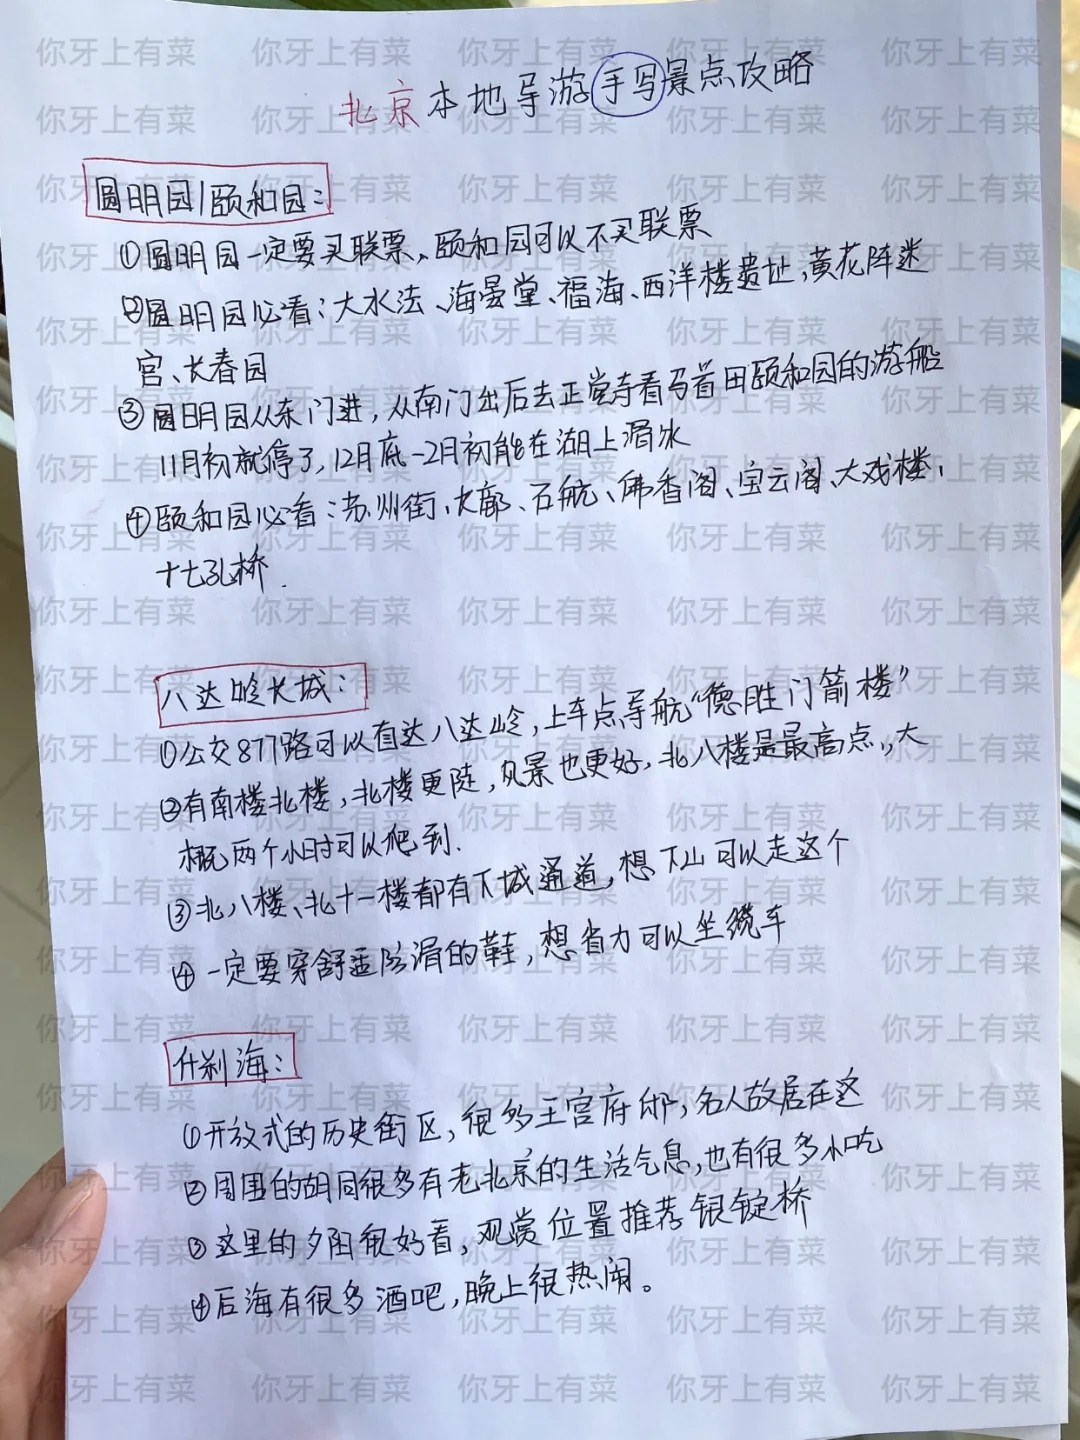 北京本地导游手写景点攻略
圆明园/颐和园:
①圆明园一定要买联票,颐和园可以不买联票
②圆明园必看:大水法、海晏堂、福海、西洋楼遗址,黄花阵迷
宫、长春园
③圆明园从东门进,从南门出后去正觉寺看马首 田颐和园的游船
11月初就停了,12月底-2月初能在湖上滑冰
④颐和园必看:苏州街,长廊、石舫、佛香阁、宝云阁、大戏楼、
十七孔桥.
八达岭长城:
①公交877路可以直达八达岭,上车点导航“德胜门箭楼”
②有南楼北楼,北楼更陡,风景也更好,北八楼是最高点,,大
概两个小时可以爬到.
③北八楼、北十一楼都有下城通道,想下山可以走这个
④一定要穿舒适防滑的鞋,想省力可以坐缆车
什刹海:
①开放式的历史街区,很多王宫府邸,名人故居在这
②周围的胡同很多有老北京的生活气息,也有很多小吃
③这里的夕阳很好看,观赏位置推荐银锭桥
④后海有很多酒吧,晚上很热闹。
你牙上有菜